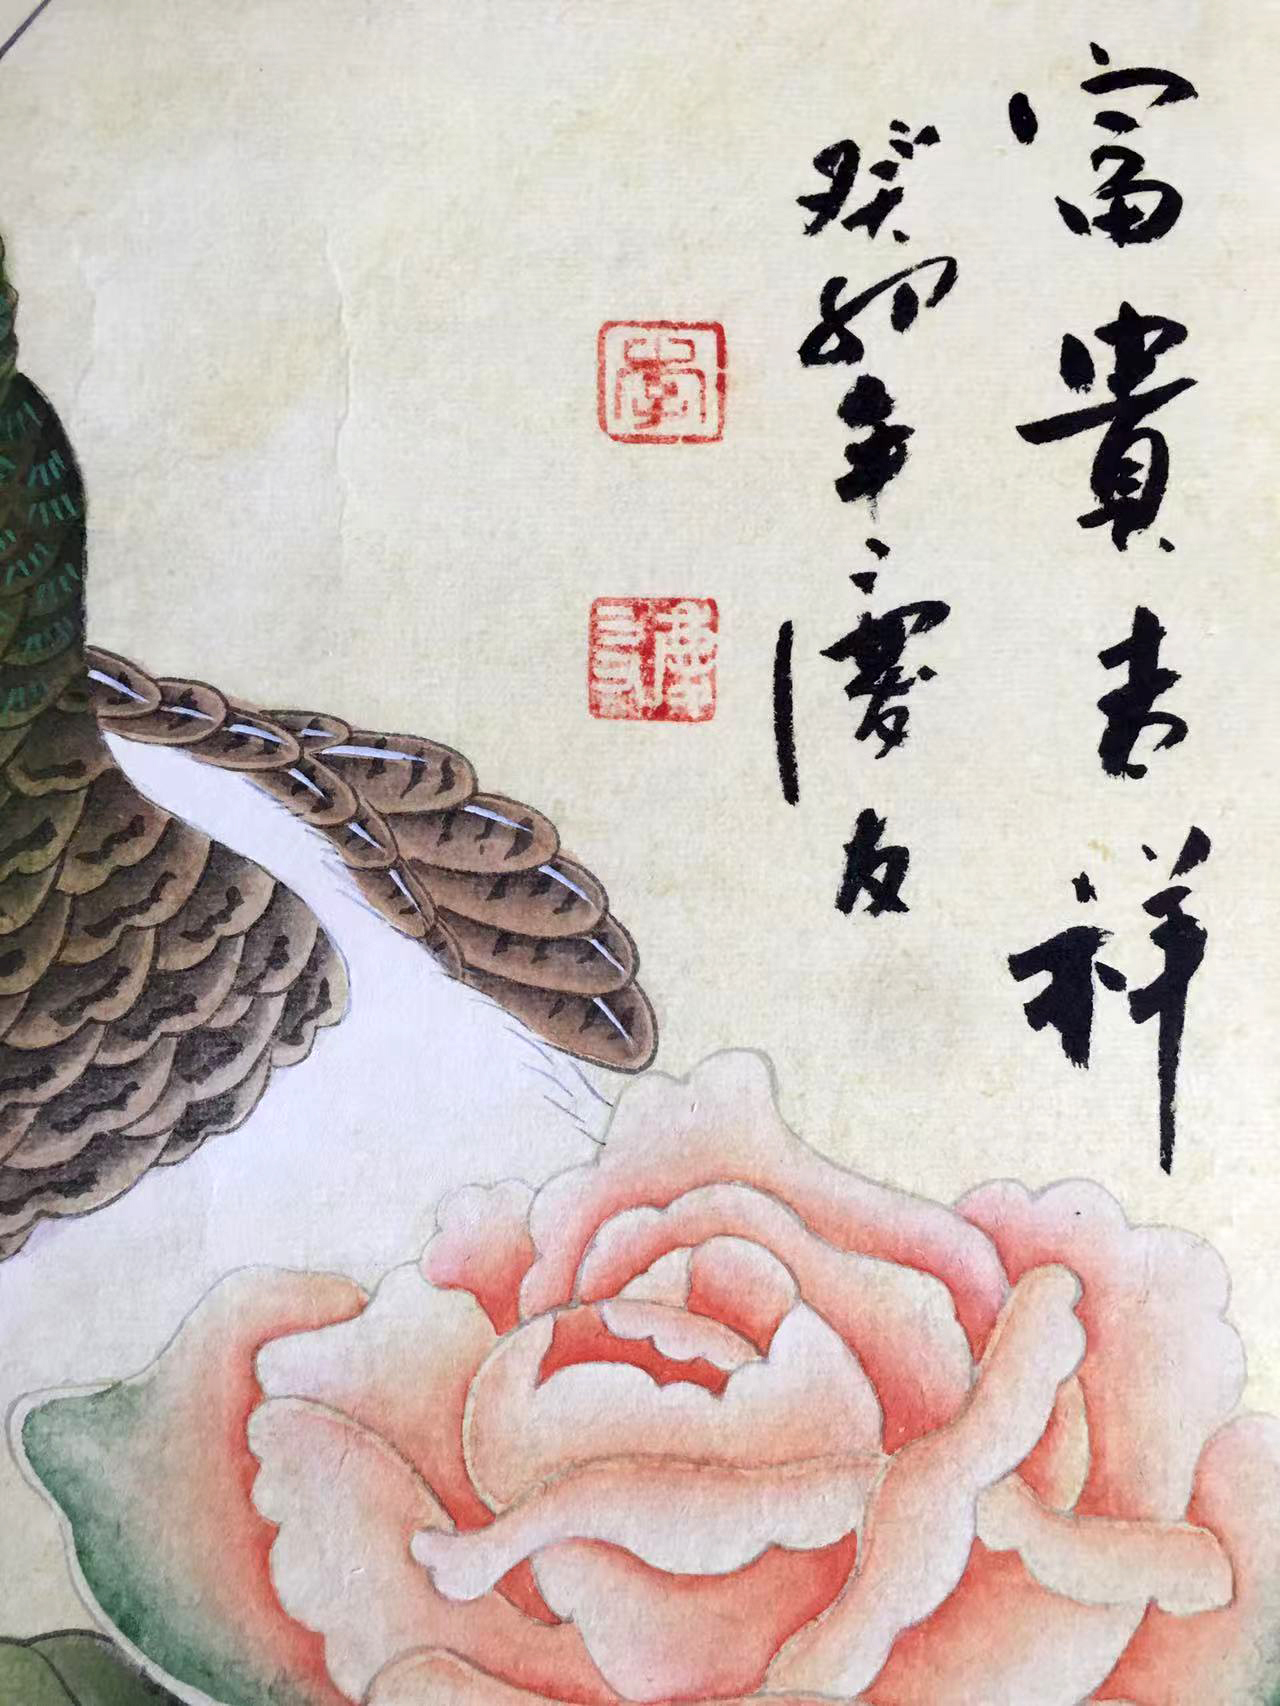 富貴吉祥
癸卯年慶友